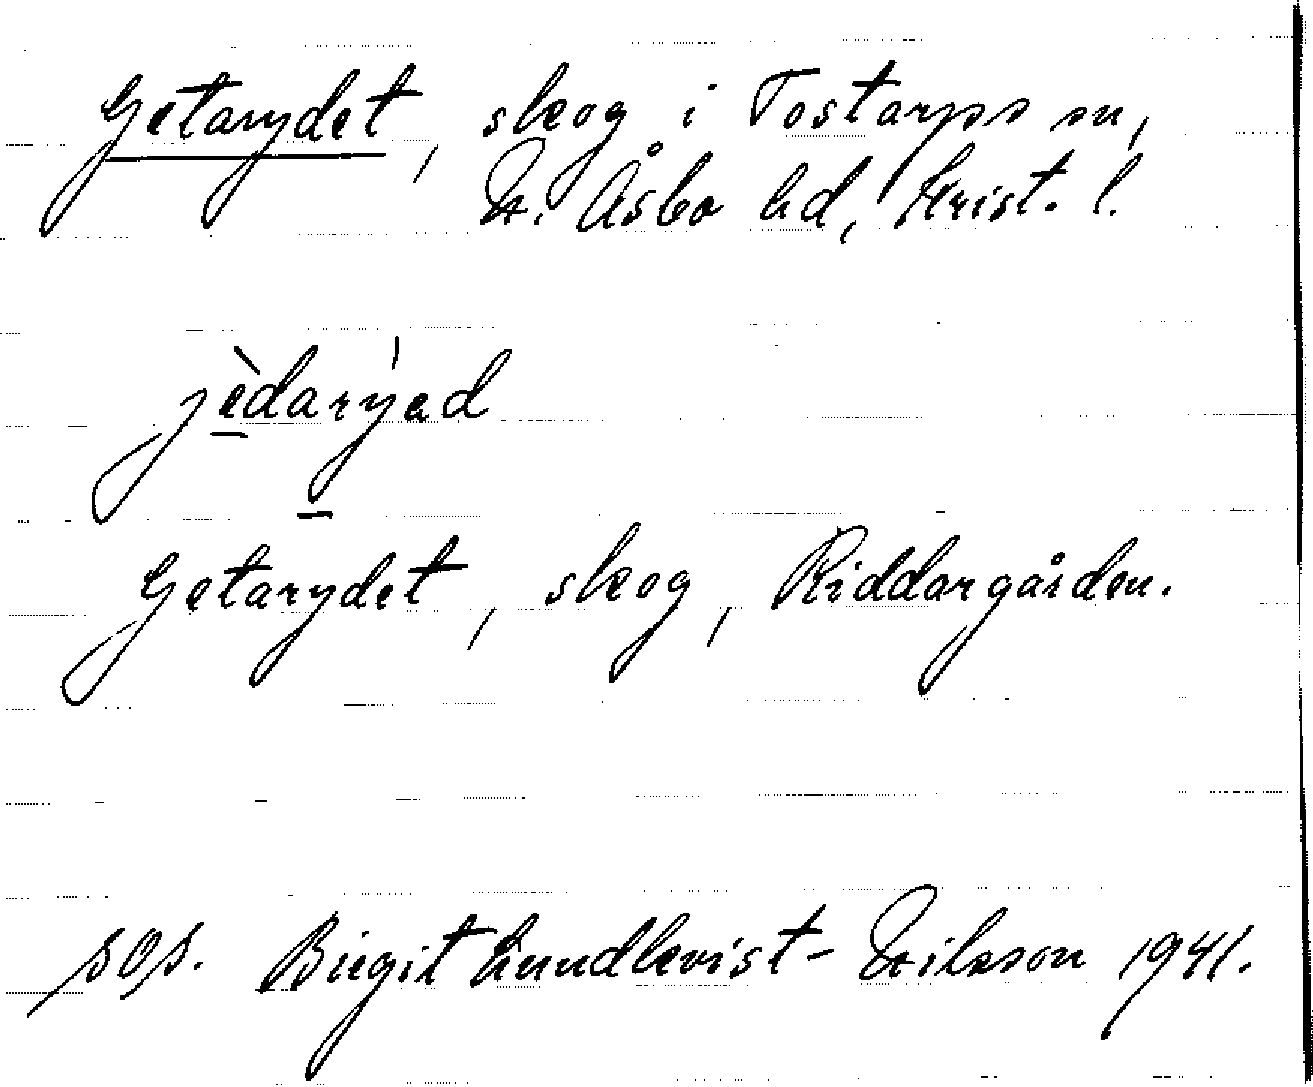 Getarydet, skog i Tostarps sn,
N. Åsbo hd, Krist. l.
jèdarỳəd
Getarydet, skog, Riddargården.
sos. Birgit Lundkvist-Nilsson 1941.